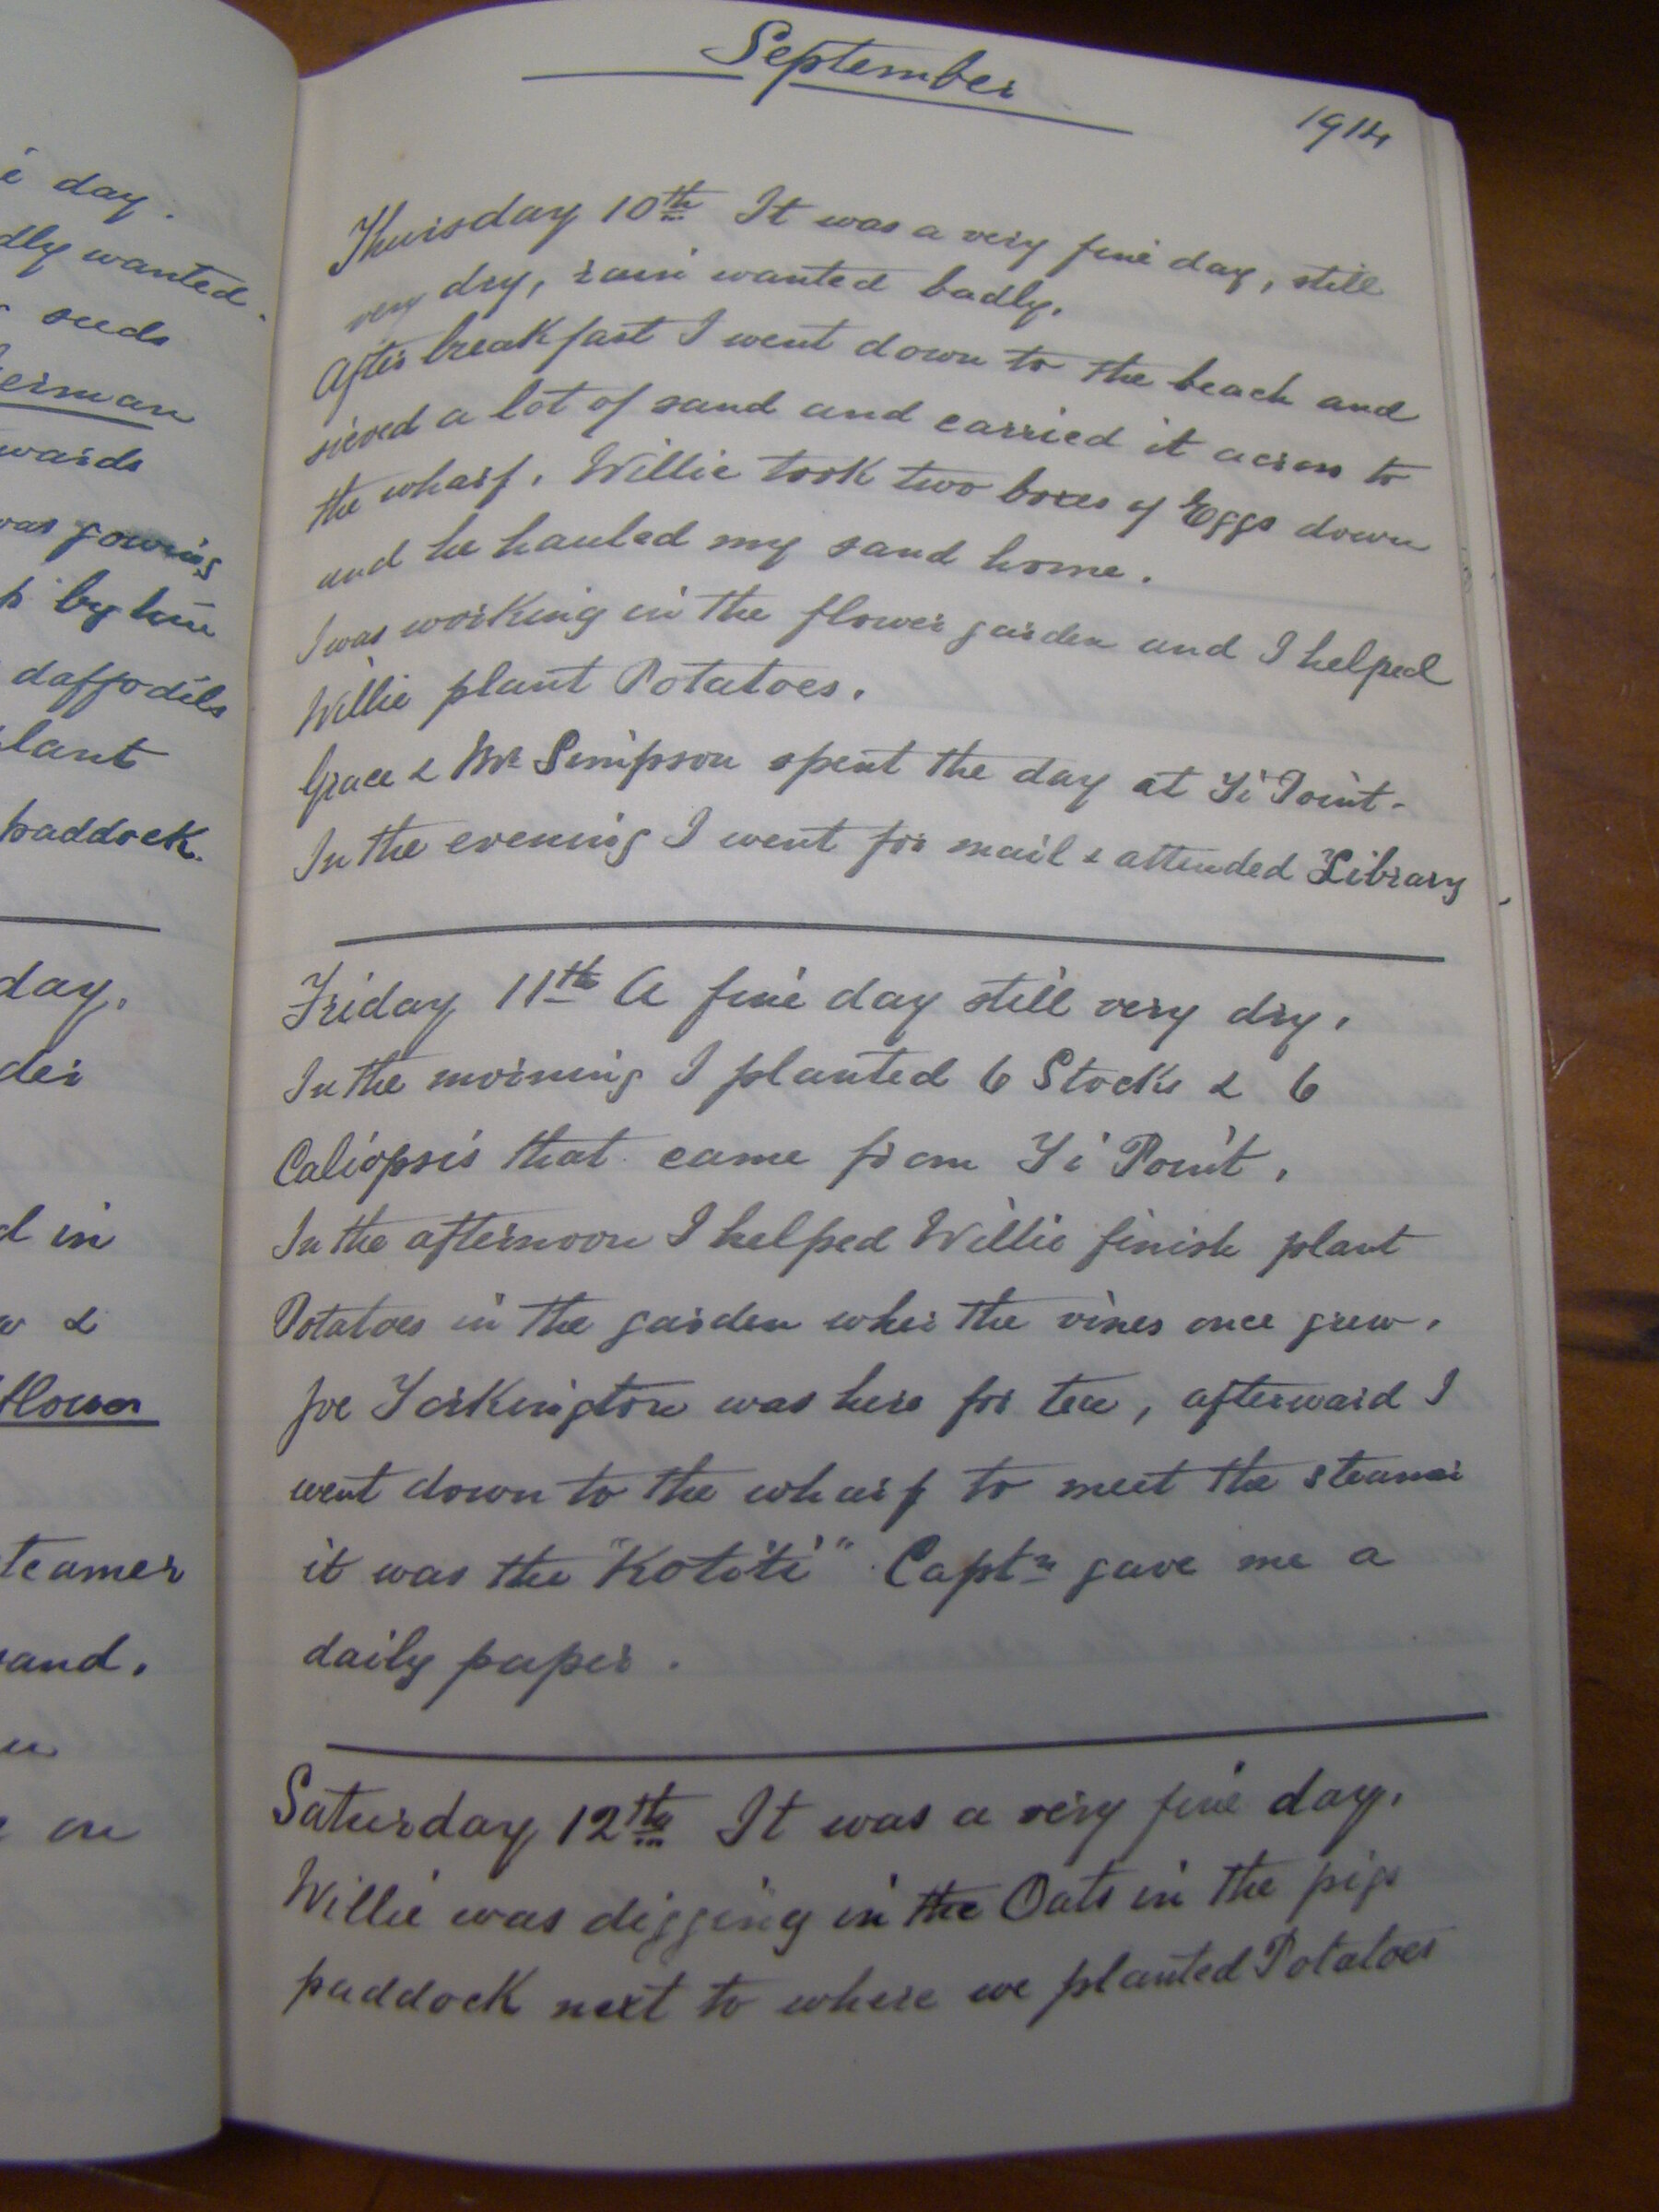 e day.
dly wanted.
seeds
erman
wards
was gowing
p by him
daffodils
plant
paddock.
day.
der
d in
w &
flower
steamer
sand.
on
September
1914
Thursday 10th It was a very fine day, still
very dry, rain wanted badly.
After breakfast I went down to the beach and
sieved a lot of sand and carried it across to
the wharf. Willie took two boxes of Eggs down
and he hauled my sand home.
I was working in the flower garden and I helped
Willie plant Potatoes.
Grace & Mr Simpson spent the day at Ti Point.
In the evening I went for mail & attended Library
Friday 11th A fine day still very dry.
In the morning I planted 6 Stocks & 6
Caliopsis that came from Ti Point.
In the afternoon I helped Willie finish plant
Potatoes in the garden wher the vines once grew.
Joe Torkington was here for tea, afterward I
went down to the wharf to meet the steamer
it was the "Kotiti" Captn gave me a
daily paper.
Saturday 12th It was a very fine day.
Willie was digging in the Oats in the pigs
paddock next to where we planted Potatoes